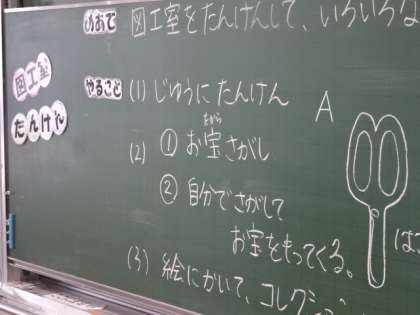 図工室
たんけん
めあて 図工室をたんけんして、いろいろな
やること (1) じゆうにたんけん
(2) ① お宝さがし
たから
② 自分でさがして
お宝をもってくる。
(3) 絵にかいて、コレクショ
A
は